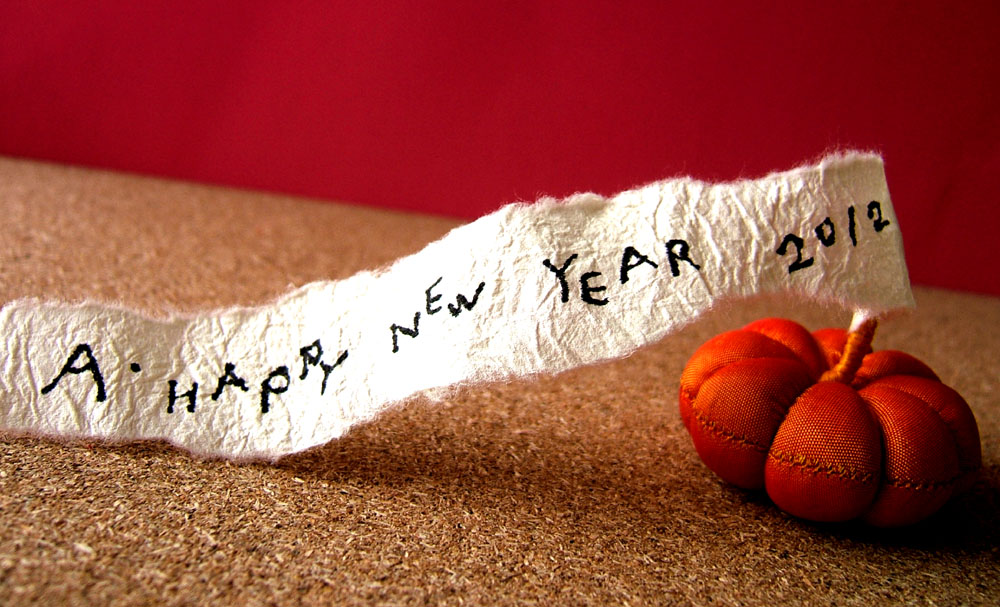 A. HAPPY NEW YEAR 2012